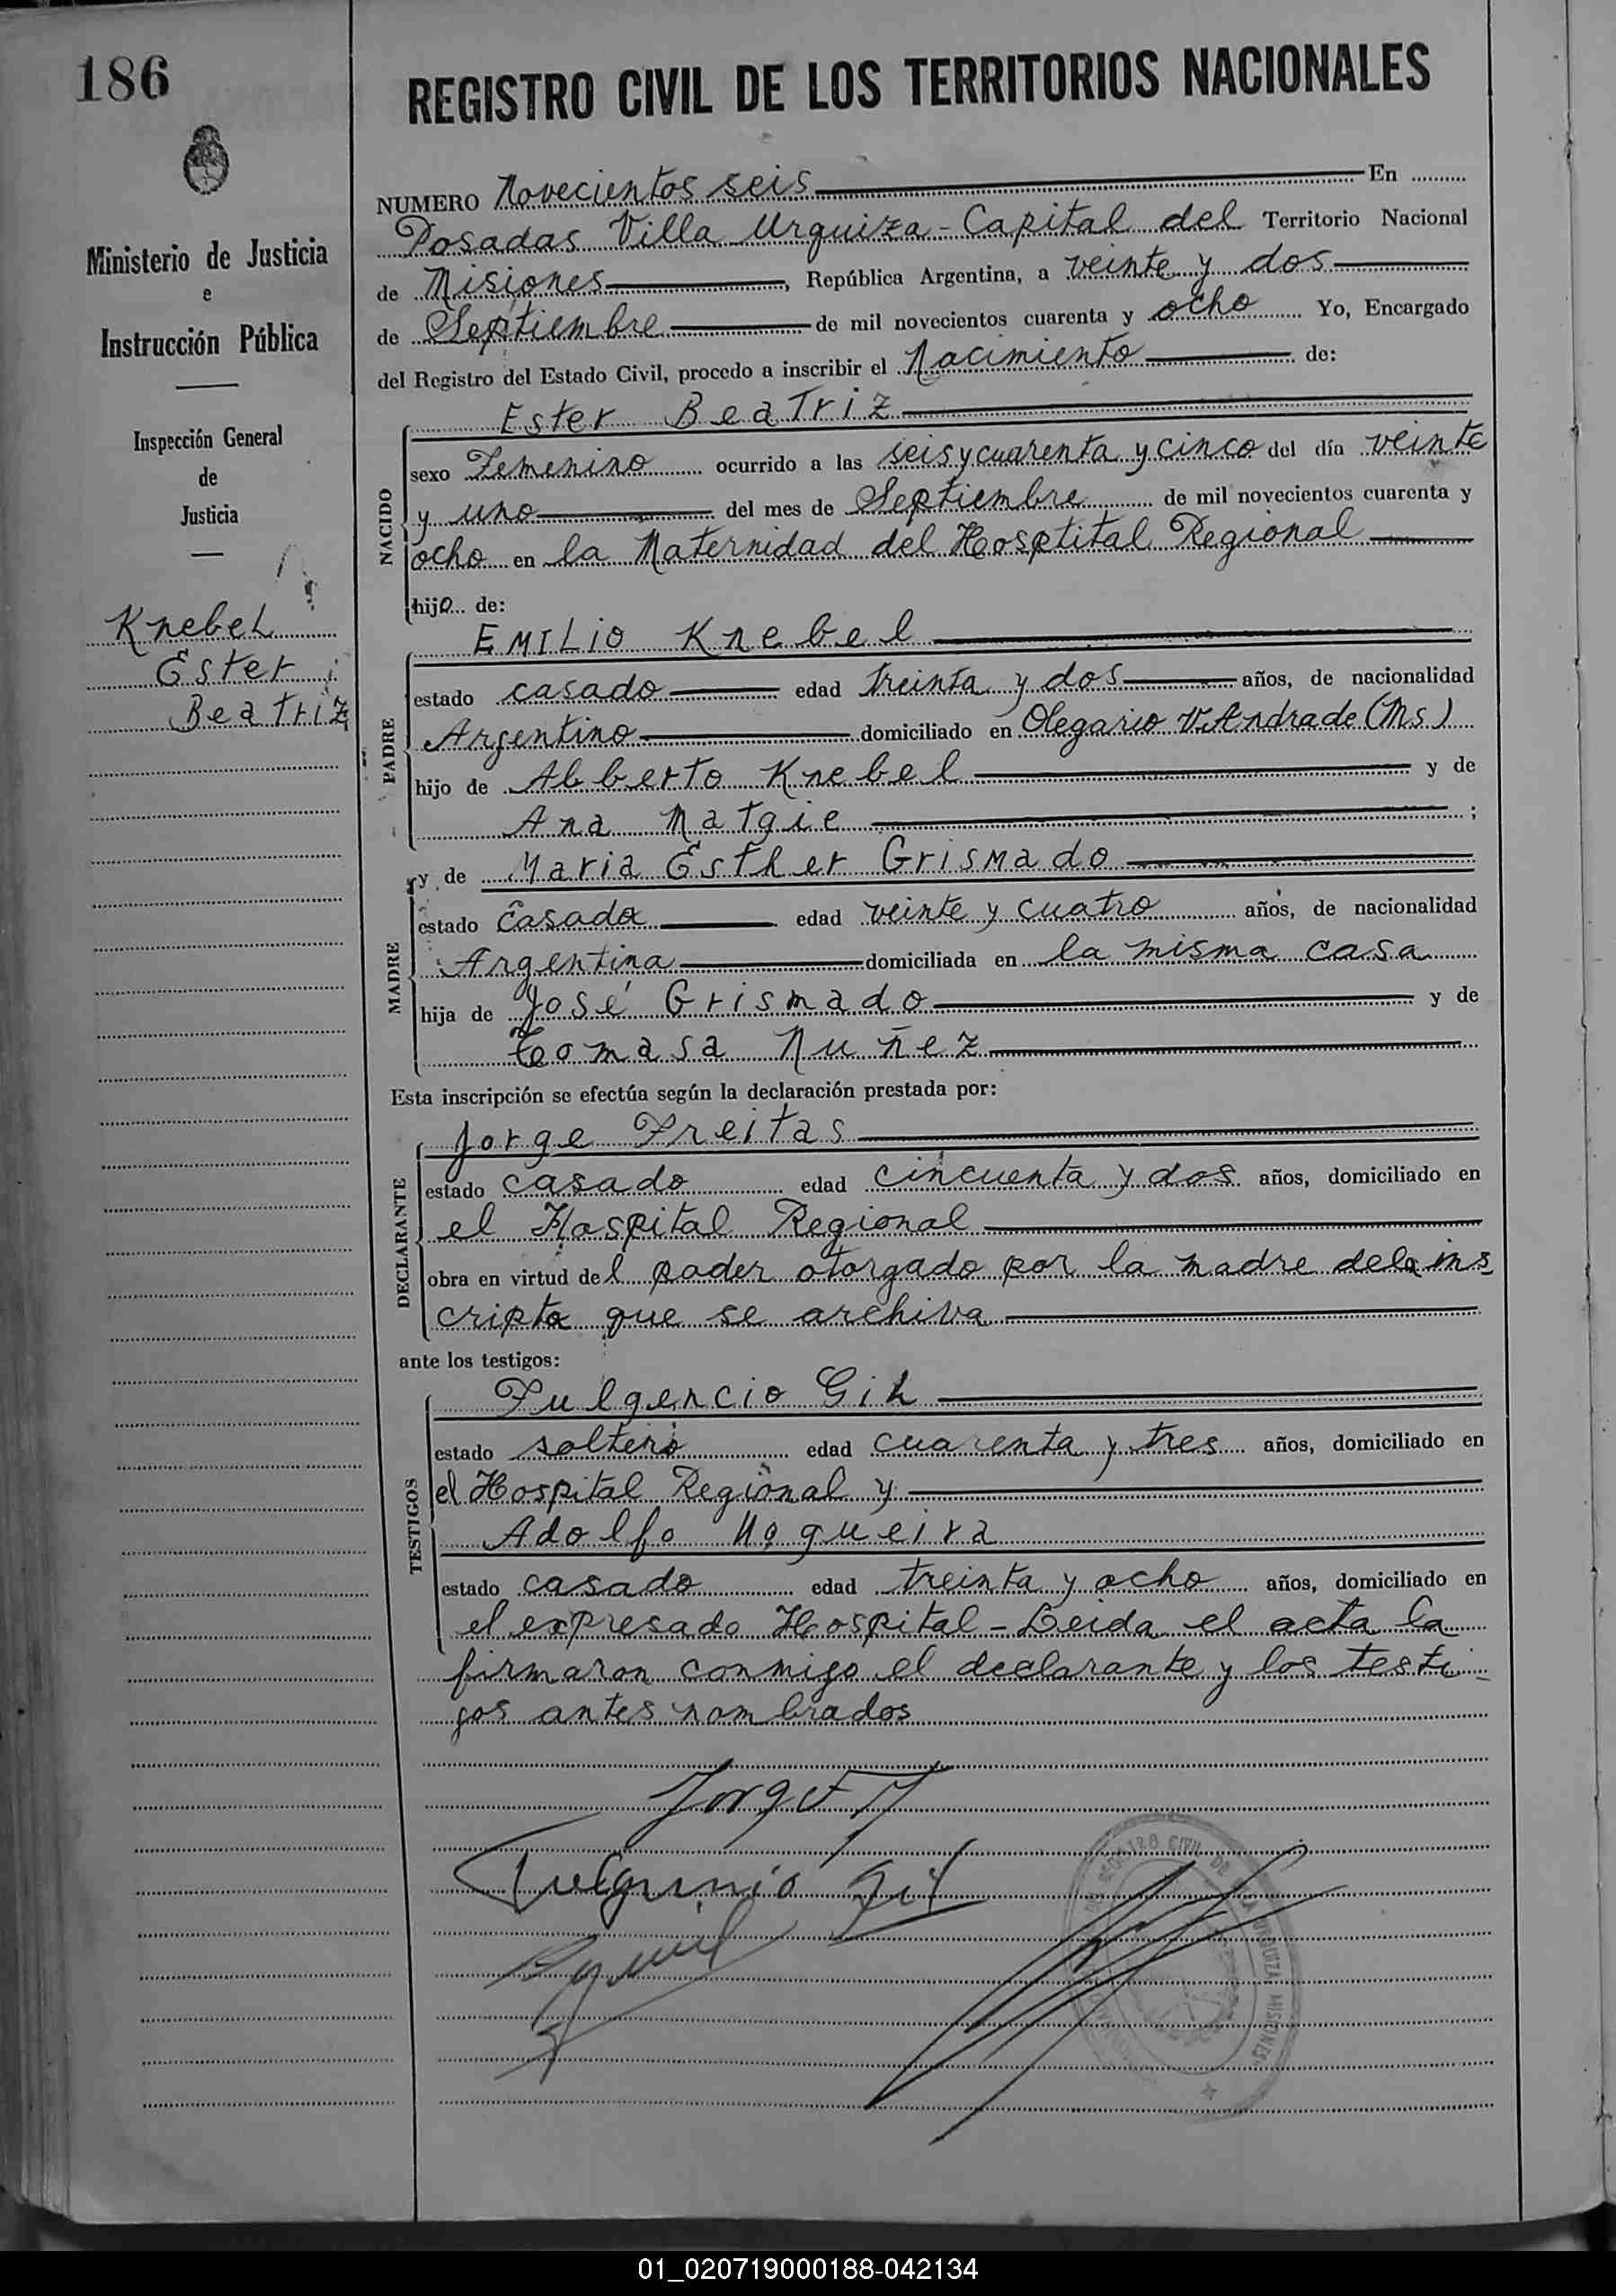 186
REGISTRO CIVIL DE LOS TERRITORIOS NACIONALES
Ministerio de Justicia
e
Instrucción Pública
Inspección General
de
Justicia
Knebel
Ester
Beatriz
NUMERO Novecientos seis En
Posadas Villa Urquiza - Capital del Territorio Nacional
de Misiones, República Argentina, a veinte y dos
de Septiembre de mil novecientos cuarenta y ocho Yo, Encargado
del Registro del Estado Civil, procedo a inscribir el Nacimiento de:
NACIDO
Ester Beatriz
sexo Femenino ocurrido a las seis y cuarenta y cinco del día veinte
y uno del mes de Septiembre de mil novecientos cuarenta y
ocho en la Maternidad del Hosptital Regional
hijo de:
PADRE
Emilio Knebel
estado casado edad treinta y dos años, de nacionalidad
Argentino domiciliado en Olegario V. Andrade (Ms)
hijo de Alberto Knebel y de
Ana Matgie ;
MADRE
y de Maria Esther Grismado
estado casada edad veinte y cuatro años, de nacionalidad
Argentina domiciliada en la misma casa
hija de José Grismado y de
Tomasa Nuñez
Esta inscripción se efectúa según la declaración prestada por:
DECLARANTE
Jorge Freitas
estado casado edad cincuenta y dos años, domiciliado en
el Hospital Regional
obra en virtud del poder otorgado por la madre de la ins
cripta que se archiva
ante los testigos:
TESTIGOS
Fulgencio Gil
estado soltero edad cuarenta y tres años, domiciliado en
el Hospital Regional y
Adolfo Nogueira
estado casado edad treinta y ocho años, domiciliado en
el expresado Hospital - Leida el acta la
firmaron conmigo el declarante y los testi-
gos antes nombrados
Jorge F
Fulgencio Gil
REGISTRO CIVIL DE VILLA URQUIZA MISIONES
01_020719000188-042134